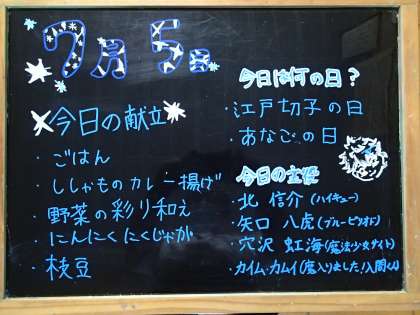 7月5日
今日の献立
・ごはん
・ししゃものカレー揚げ
・野菜の彩り和え
・にんにくにくじゃが
・枝豆
今日は何の日?
・江戸切子の日
・あなごの日
今日の主役
・北 信介(ハイキュー)
・矢口 八虎(ブルーピリオド)
・穴沢 虹海(魔法少女サイト)
・カイム・カムイ(魔入りました!入間くん)